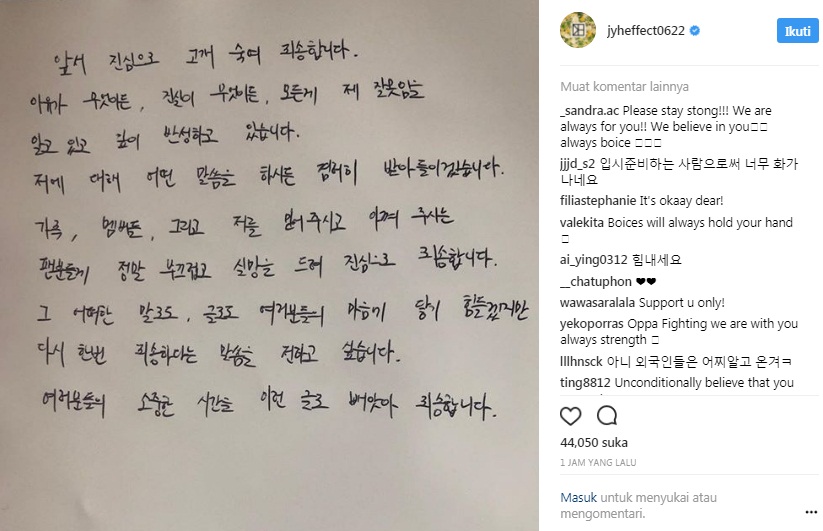 앞서 진심으로 고개 숙여 죄송합니다.
이유가 무엇이든, 진실이 무엇이든, 모든게 제 잘못임을
알고 있고 깊이 반성하고 있습니다.
저에 대해 어떤 말씀을 하시든 겸허히 받아들이겠습니다.
가족, 멤버들, 그리고 저를 믿어주시고 아껴 주시는
팬분들께 정말 부끄럽고 실망을 드려 진심으로 죄송합니다.
그 어떠한 말로도, 글로도 여러분들의 마음기 닿기 힘들겠지만
다시 한번 죄송하다는 말씀을 전하고 싶습니다.
여러분들의 소중한 시간을 이런 글로 빼앗아 죄송합니다.
jyheffect0622
Ikuti
Muat komentar lainnya
_sandra.ac Please stay stong!!! We are
always for you!! We believe in you
always boice
jjjd_s2 입시준비하는 사람으로써 너무 화가
나네요
filiastephanie It's okaay dear!
valekita Boices will always hold your hand
ai_ying0312 힘내세요
__chatuphon ❤❤
wawasaralala Support u only!
yekoporras Oppa Fighting we are with you
always strength
lllhnsck 아니 외국인들은 어찌알고 온겨ㅋ
ting8812 Unconditionally believe that you
44,050 suka
1 JAM YANG LALU
Masuk untuk menyukai atau
mengomentari.